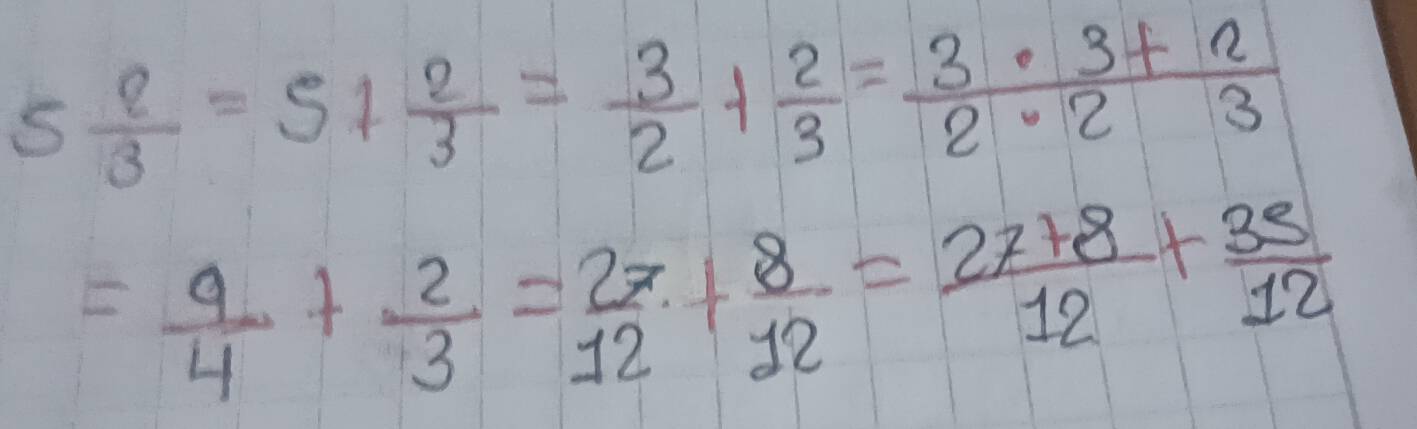 5 2/3 = 5 + 2/3 = 3/2 + 2/3 = 3 · 3 + 2 / 2 · 2 3
= 9/4 + 2/3 = 27/12 + 8/12 = 27+8/12 + 35/12